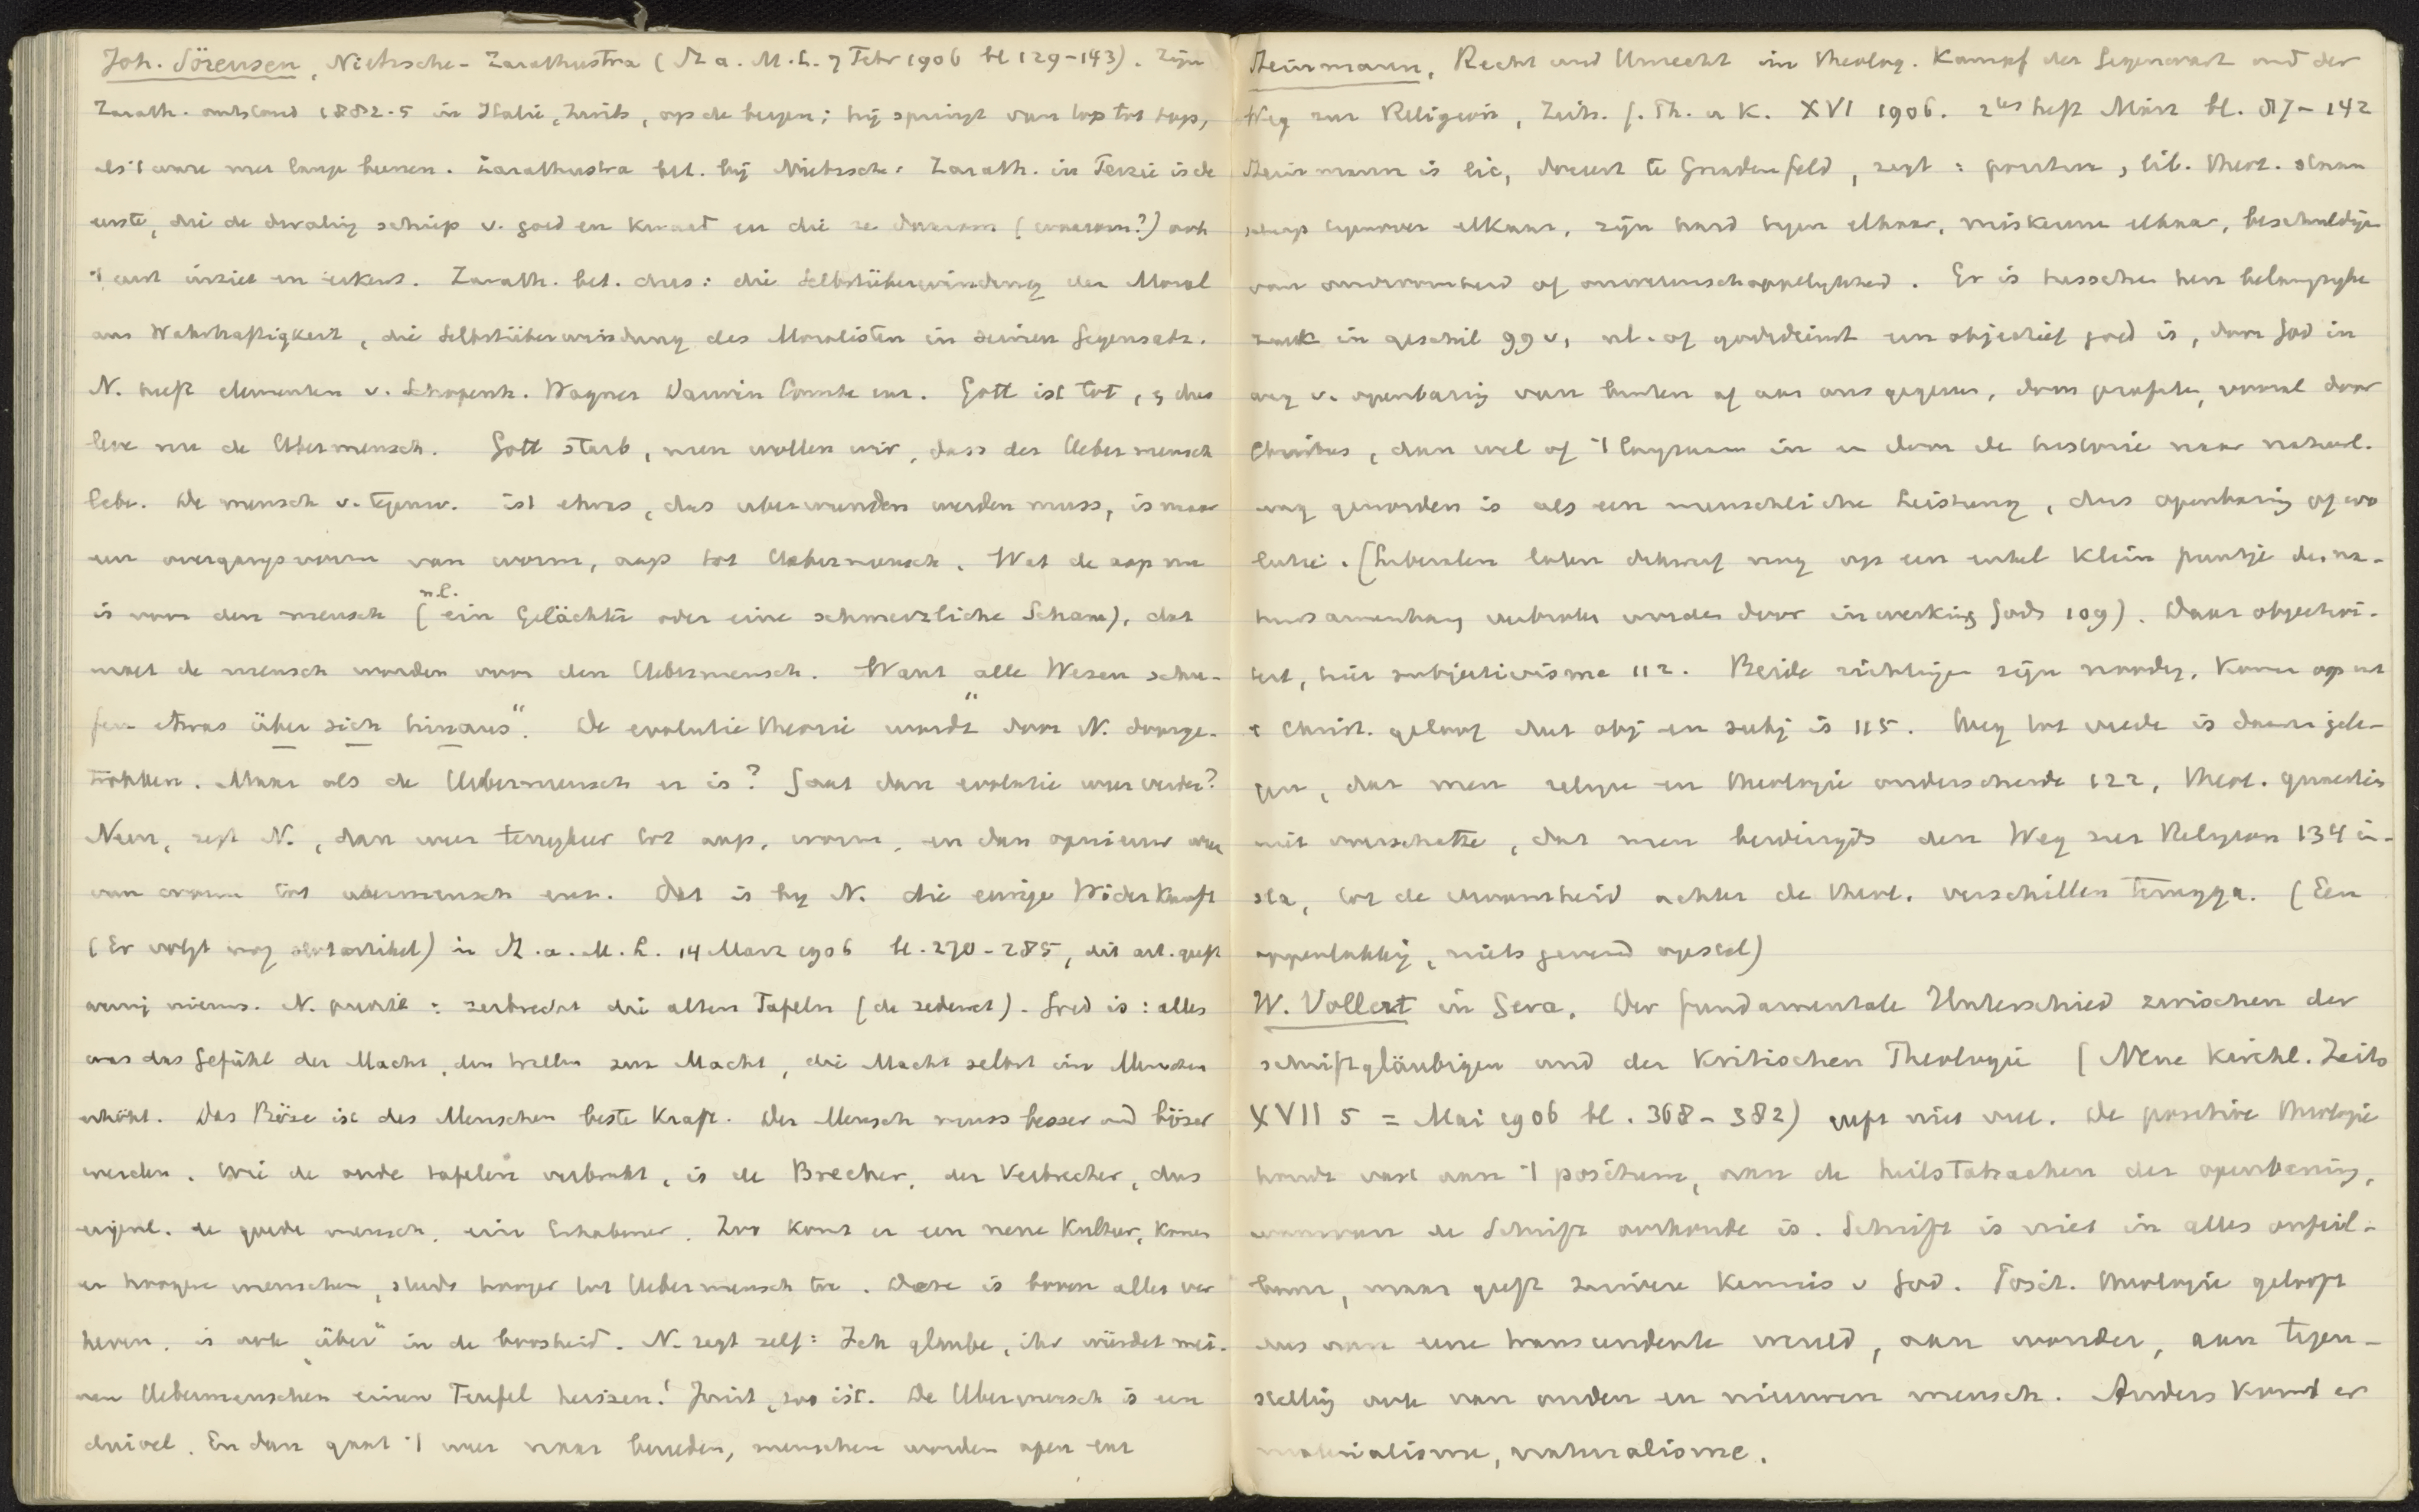 Joh. Sörensen, Nietzsche-Zarathustra (St a. M. L. 7 Febr 1906 bl 129-143). Zijn
Zarath. ontstond 1882-5 in Italie, Zwits, op de bergen; hij springt van top tot top,
als 't ware met lange beenen. Zarathustra bet. bij Nietzsche: Zarath. in Perzie is de
eerste, die de dwaling schiep v. goed en kwaad en die ze daarom (waarom?) ook
't eerst inziet en erkent. Zarath. bet. dus: die Selbstüberwindung der Moral
aus Wahrhaftigkeit, die Selbstüberwindung des Moralisten in seinen Gegensatz.
N. heeft elementen v. Schopenh. Wagner Darwin Comte enz. Gott ist tot, dus
leve nu de Ubermensch. Gott starb, nun wollen wir, dass der Uebermensch
lebe. De mensch v. tegenw. ist etwas, das uberwunden werden muss, is maar
een overgangsvorm van worm, aap tot Uebermensch. Wat de aap nu
is voor den mensch (n.l. ein Gelächter oder eine schmerzliche Scham), dat
moet de mensch worden voor den Uebermensch. Want "alle Wesen schu-
fen etwas über sich hinaus". De evolutie theorie wordt door N. doorge-
trokken. Maar als de Uebermensch er is? Gaat dan evolutie weer verder?
Neen, zegt N., dan weer terugkeer tot aap, worm, en dan opnieuw weer
van worm tot ubermensch enz. Dat is bij N. die ewige Wiederkunft
(Er volgt nog slotartikel) in St. a. M. L. 14 Marz 1906 bl. 270-285, dit art. geeft
weinig nieuws. N. predikt: zerbrecht die alten Tafeln (de zedewet). Goed is: alles
was das Gefühl der Macht, den Willen zur Macht, die Macht selbst im Menschen
erhöht. Das Böse ist des Menschen beste Kraft. Der Mensch muss besser und böser
werden. Wie de oude tafelen verbreekt, is de Brecher, der Verbrecher, dus
eigenl. de goede mensch, ein Erhabener. Zoo komt er een nene Kultur, komen
er hoogere menschen, steeds hooger tot Uebermensch toe. Deze is boven alles ver
heven, is ook "über" in de boosheid. N. zegt zelf: Ich glaube, ihr würdet mei-
nen Uebermenschen einen Teufel heissen! Juist, zoo ist. De Ubermensch is een
duivel. En dan gaat 't weer naar beneden, menschen worden apen enz
Steinmann, Recht und Unrecht im theolog. Kampf der Gegenwart und der
Weg zur Religion, Zeits. f. Th. u K. XVI 1906. 2tes heft März bl. 87-142
Steinmann is lic, docent te Gnadenfeld, zegt: positieve, lib. theol. staan
scherp tegenover elkaar, zijn hard tegen elkaar, miskennen elkaar, beschuldigen
van onvroomheid of onwetenschappelykheid. Er is tusschen hen belangryke
zaak in geschil 99 v, nl. of godsdienst een objectief goed is, door God in
weg v. openbaring van buiten af aan ons gegeven, door profeten, vooral door
Christus, dan wel of 't langzaam in en door de historie naar natuurl.
weg geworden is als een menschliche Leistung, dus openbaring of evo
lutie. (Liberalen laten dikwijls nog op een enkel klein puntje de na-
tuursamenhang verbroken worden door inwerking Gods 109). Daar objectivi-
teit, hier subjectivisme 112. Beide richtingen zijn noodig, komen op uit
't Christ. geloof dat obj en subj is 115. Weg tot vrede is daarin gele-
gen, dat men religie en theologie onderscheide 122, theol. quaesties
niet overschatte, dat men beiderzijds den Weg zur Religion 134 in-
sla, tot de vroomheid achter de theol. verschillen teruggga. (Een
oppervlakkig, niets gevend opstel)
W. Vollert in Gera. Der fundamentale Unterschied zwischen der
schriftgläubigen und der kritischen Theologie (Nene kirchl. Zeits
XVII 5 = Mai 1906 bl. 368-382) geeft niet veel. De positive theologie
houdt vast aan 't positieve, aan de heilstatsachen der openbaring,
waarvan de Schrift oorkonde is. Schrift is niet in alles onfeil-
baar, maar geeft zuivere kennis v God. Posit. theologie gelooft
dus aan eene transcendente wereld, aan wonder, aan tegen-
stelling ook van ouden en nieuwen mensch. Anders komt er
materialisme, naturalisme.